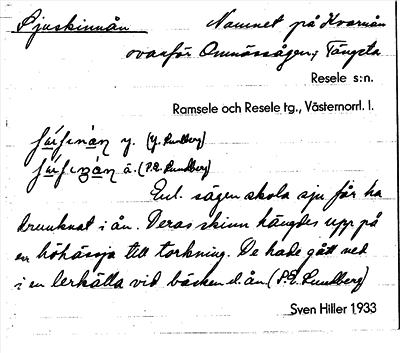 Sjuskinnån Namnet på Kvarnån
ovanför Omnässågen; Tängsta
Resele s:n.
Ramsele och Resele tg., Västernorrl. l.
y. (Y. Lundberg)
ä. (P.E. Lundberg)
Enl. sägen skola sju får ha
drunknat i ån. Deras skinn hängdes upp på
en höhässja till torkning. De hade gått ned
i en lerkälla vid bäcken el. ån (P.E. Lundberg)
Sven Hiller 1933